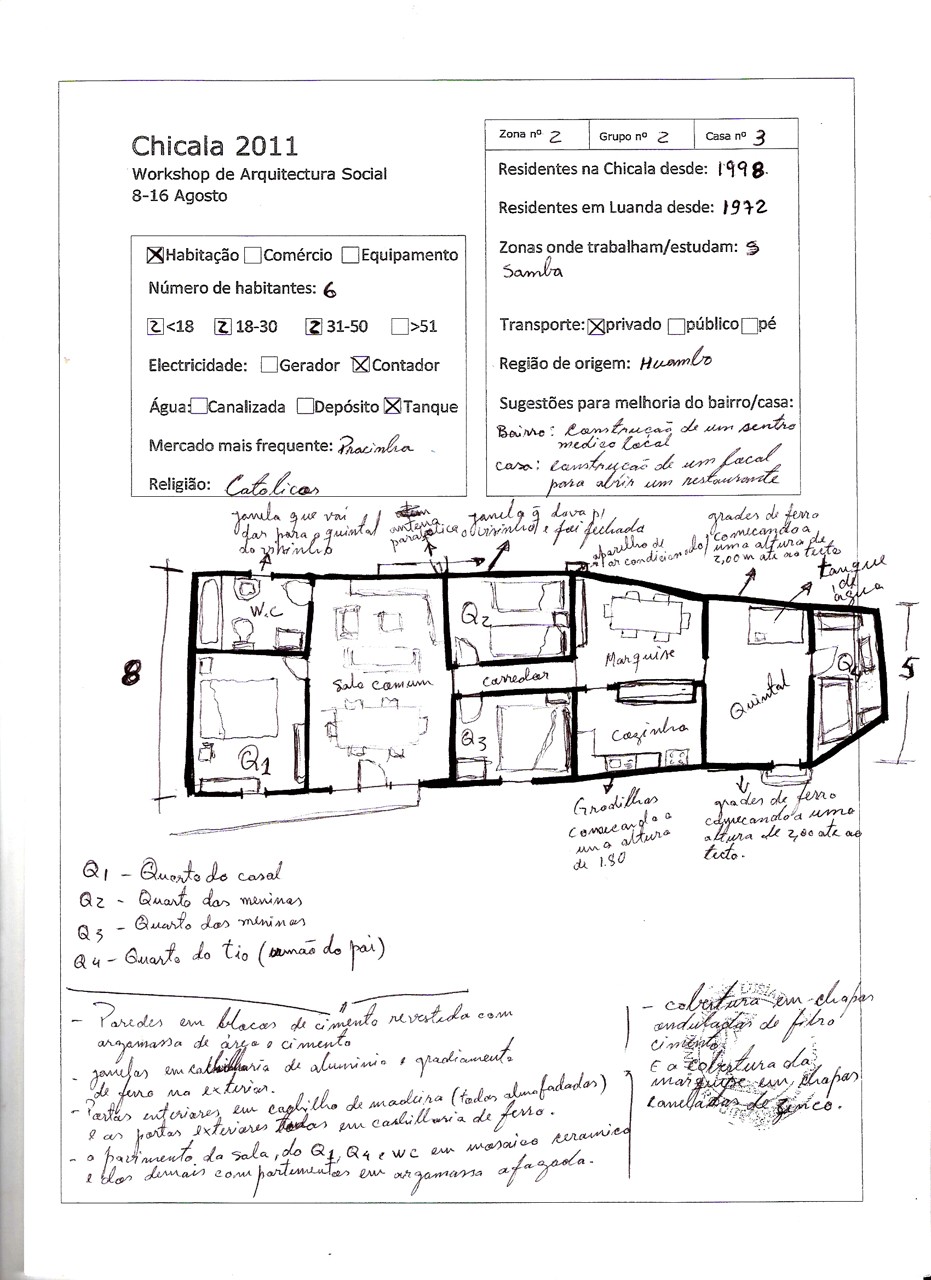 Chicala 2011
Workshop de Arquitectura Social
8-16 Agosto
Habitação Comércio Equipamento
Número de habitantes: 6
2 <18 2 18-30 2 31-50 >51
Electricidade: Gerador Contador
Água: Canalizada Depósito Tanque
Mercado mais frequente: Pracinha
Religião: Catolicos
Zona nº 2 Grupo nº 2 Casa nº 3
Residentes na Chicala desde: 1998.
Residentes em Luanda desde: 1972
Zonas onde trabalham/estudam:
Samba
Transporte: privado público pé
Região de origem: Huambo
Sugestões para melhoria do bairro/casa:
Bairro: Construção de um sentro
medico local
casa: construção de um local
para abrir um restaurante
janela que vai
dar para o quintal
do vizinho
antena
parabolica
janela q̃ dava p/
o vizinho e foi fechada
aparelho de
ar condicionado
grades de ferro
começando a
uma altura de
2,00 m ate ao tecto
tanque
de
água
8
W.C
Q1
Sala comum
Q2
corredor
Q3
Marquise
Cozinha
Quintal
Q4
5
Gradilhas
começando a
uma altura
de 1.80
grades de ferro
começando a uma
altura de 2,00 ate ao
tecto.
Q1 - Quarto do casal
Q2 - Quarto das meninas
Q3 - Quarto dos meninos
Q4 - Quarto do tio (irmão do pai)
- Paredes em blocos de cimento revestida com
argamassa de área e cimento
- janelas em caixilharia de aluminio e gradiamento
de ferro na exterior.
- Portas interiores em caxilho de madeira (todas almofadadas)
e as portas exteriores todas em caxilharia de ferro.
- o pavimento da sala, do Q1, Q4 e WC em mosaico ceramico
e dos demais compartimentos em argamassa afagada.
- cobertura em chapas
onduladas de fibro
cimento
E a cobertura da
marquise em chapas
caneladas de zinco.